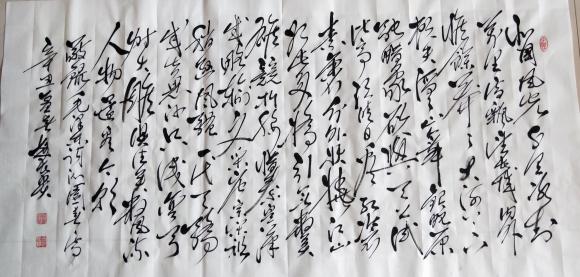 北国风光千里冰封
万里雪飘望长城内外
惟余莽莽大河上下
顿失滔滔山舞银蛇原
驰蜡象欲与天公试
比高须晴日看红装
素裹分外妖娆江山
如此多娇引无数英
雄竞折腰惜秦皇汉
武略输文采唐宗宋祖
稍逊风骚一代天骄
成吉思汗只识弯弓
射大雕俱往矣数风流
人物还看今朝
毛泽东词沁园春雪
辛丑